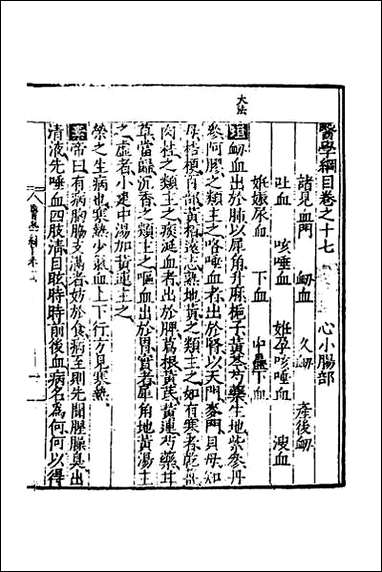 醫學綱目卷之十七　心小腸部
諸見血門　衂血　久衂　產後衂
吐血　咳唾血　姙孕咳唾血　溲血
姙娠尿血　下血
大法
衂血出於肺以犀角升麻梔子黃芩芍藥生地紫參丹
參阿膠之類主之咯唾血者出於腎以天門麥門貝母知
母桔梗百部黃栢遠志熟地黃之類主之如有寒者乾薑
肉桂之類主之痰涎血者出於脾葛根黃芪黃連芍藥甘
草當歸沉香之類主之嘔血出於胃實者犀角地黃湯主
之虛者小建中湯加黃連主之
榮之生病也寒熱少氣血上下行方見寒熱
素帝曰有病胸脇支滿者妨於食病至則先聞腥臊臭出
清液先唾血四肢清目眩時時前後血病名為何何以得
醫學綱目卷十七